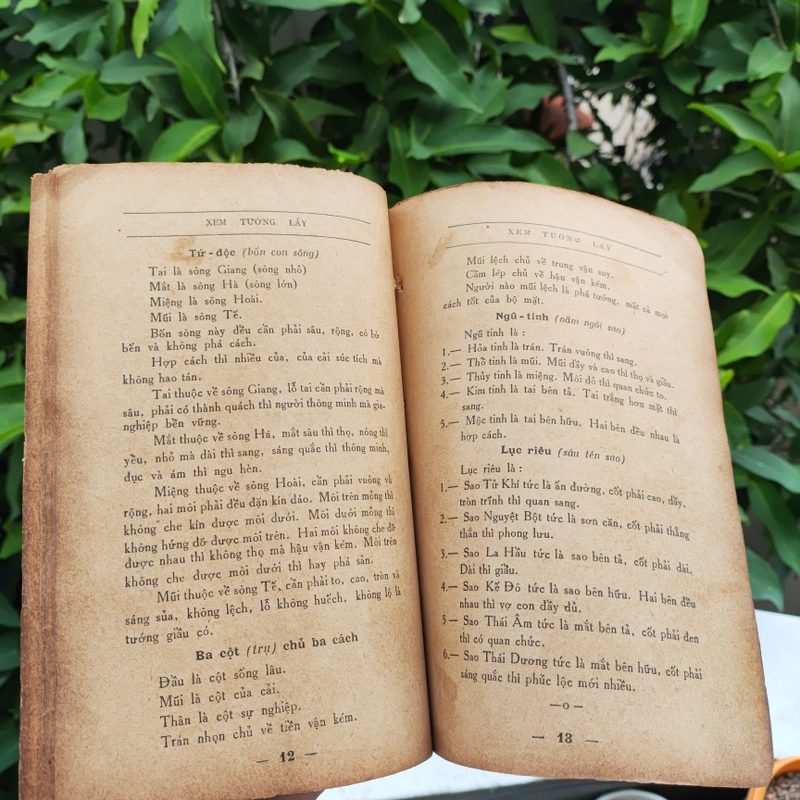 XEM TƯỚNG LẤY
Tứ-độc (bốn con sông)
Tai là sông Giang (sông nhỏ)
Mắt là sông Hà (sông lớn)
Miệng là sông Hoài.
Mũi là sông Tế.
Bốn sông này đều cần phải sâu, rộng, có bờ
bến và không phá cách.
Hợp cách thì nhiều của, của cải súc tích mà
không hao tán.
Tai thuộc về sông Giang, lỗ tai cần phải rộng mà
sâu, phải có thành quách thì người thông minh mà gia-
nghiệp bền vững.
Mắt thuộc về sông Hà, mắt sâu thì thọ, nông thì
yểu, nhỏ mà dài thì sang, sáng quắc thì thông minh,
đục và ám thì ngu hèn.
Miệng thuộc về sông Hoài, cần phải vuông và
rộng, hai môi phải đều đặn kín đáo. Môi trên mỏng thì
không che kín được môi dưới. Môi dưới mỏng thì
không hứng đỡ được môi trên. Hai môi không che đỡ
được nhau thì không thọ mà hậu vận kém. Môi trên
không che được môi dưới thì hay phá sản.
Mũi thuộc về sông Tế, cần phải to, cao, tròn và
sáng sủa, không lệch, lỗ không huếch, không lộ là
tướng giầu có.
Ba cột (trụ) chủ ba cách
Đầu là cột sống lâu.
Mũi là cột của cải.
Thân là cột sự nghiệp.
Trán nhọn chủ về tiền vận kém.
— 12 —
XEM TƯỚNG LẤY
Mũi lệch chủ về trung vận suy.
Cằm lép chủ về hậu vận kém.
Người nào mũi lệch là phá tướng, mất cả mọi
cách tốt của bộ mặt.
Ngũ-tinh (năm ngôi sao)
Ngũ tinh là :
1.— Hỏa tinh là trán. Trán vuông thì sang.
2.— Thổ tinh là mũi. Mũi dầy và cao thì thọ và giầu.
3.— Thủy tinh là miệng. Môi đỏ thì quan chức to.
4.— Kim tinh là tai bên tả. Tai trắng hơn mặt thì
sang.
5.— Mộc tinh là tai bên hữu. Hai bên đều nhau là
hợp cách.
Lục riêu (sáu tên sao)
Lục riêu là :
1.— Sao Tử Khí tức là ấn đường, cốt phải cao, dầy,
tròn trĩnh thì quan sang.
2.— Sao Nguyệt Bột tức là sơn căn, cốt phải thẳng
thắn thì phong lưu.
3.— Sao La Hầu tức là sao bên tả, cốt phải dài.
Dài thì giầu.
4.— Sao Kế Đô tức là sao bên hữu. Hai bên đều
nhau thì vợ con đầy đủ.
5 — Sao Thái Âm tức là mắt bên tả, cốt phải đen
thì có quan chức.
6.— Sao Thái Dương tức là mắt bên hữu, cốt phải
sáng quắc thì phúc lộc mới nhiều.
—o—
— 13 —